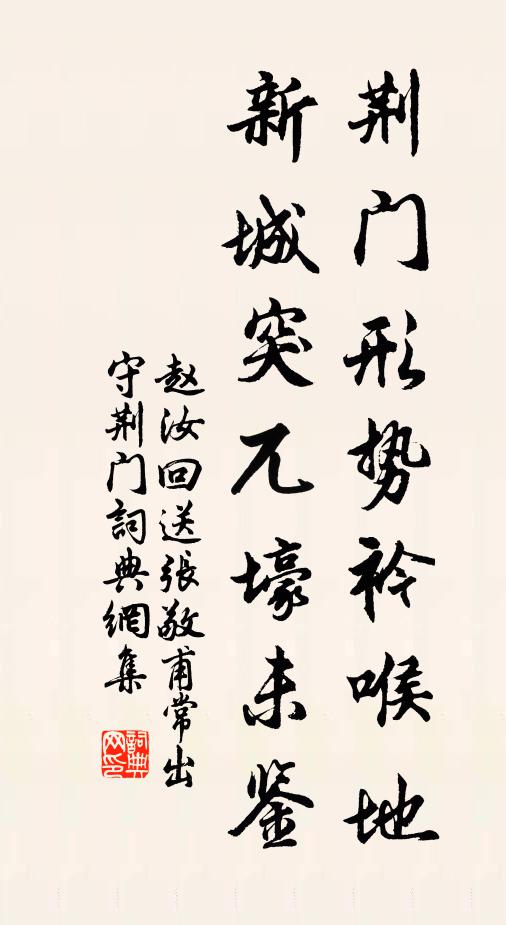 荆门形势衿喉地
新城突兀壕未鉴
赵汝回送張敬甫常出
守荆门詞典網集
詞典网印